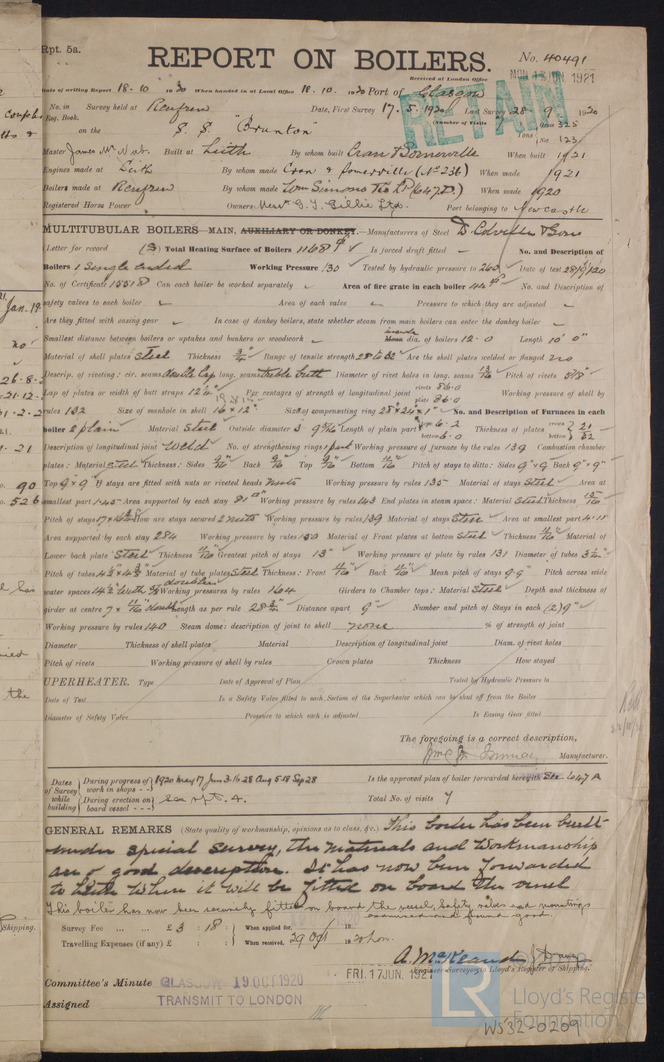 Rpt. 5a.
REPORT ON BOILERS.
No. 40491
Received at London Office MON. 13 JUN. 1921
Date of writing Report 18.10.1920 When handed in at Local Office 18.10.1920 Port of Glasgow
RETAIN
No. in Reg. Book. Survey held at Renfrew Date, First Survey 17.5.1920 Last Survey 28.9.1920
(Number of Visits
on the S. S. "Brunton" Tons Gross 325 Net 123
Master James Built at Leith By whom built Cran & Somerville When built 1921
Engines made at Leith By whom made Cran & Somerville (No 236) When made 1921
Boilers made at Renfrew By whom made Wm Simons & Co Ld (647.D.) When made 1920
Registered Horse Power Owners Messrs G. T. Gillie Ltd. Port belonging to Newcastle
MULTITUBULAR BOILERS—MAIN, AUXILIARY OR DONKEY.—Manufacturers of Steel D. Colville & Sons
(Letter for record (S) Total Heating Surface of Boilers 1168 Is forced draft fitted No. and Description of
Boilers 1 Single ended Working Pressure 130 Tested by hydraulic pressure to 260 Date of test 28/9/20
No. of Certificate 15518 Can each boiler be worked separately Area of fire grate in each boiler 42 No. and Description of
safety valves to each boiler Area of each valve Pressure to which they are adjusted
Are they fitted with easing gear In case of donkey boilers, state whether steam from main boilers can enter the donkey boiler
Smallest distance between boilers or uptakes and bunkers or woodwork inside Mean dia. of boilers 12.0 Length 10'0"
Material of shell plates Steel Thickness 3/4 Range of tensile strength 28 to 32 Are the shell plates welded or flanged no
Descrip. of riveting: cir. seams double lap long. seams treble butt Diameter of rivet holes in long. seams 13/16 Pitch of rivets 5 5/8"
Lap of plates or width of butt straps 12 Per centages of strength of longitudinal joint rivets 86.0 plate 86.0 Working pressure of shell by
rules 132 Size of manhole in shell 16 × 12" Size of compensating ring 28 × 24 × 1" No. and Description of Furnaces in each
boiler 2 plain Material Steel Outside diameter 3. 9 Length of plain part top 6.2 bottom 6.0 Thickness of plates crown 21/32 bottom
Description of longitudinal joint Weld No. of strengthening rings Working pressure of furnace by the rules 139 Combustion chamber
plates: Material Steel Thickness: Sides 9/16 Back 9/16 Top 9/16 Bottom Pitch of stays to ditto: Sides 9 × 9 Back 9" × 9"
Top 9 × 9 If stays are fitted with nuts or riveted heads nuts Working pressure by rules 135 Material of stays Steel Area at
smallest part 1.45 Area supported by each stay 81" Working pressure by rules 143 End plates in steam space: Material Steel Thickness
Pitch of stays How are stays secured 2 nuts Working pressure by rules 139 Material of stays Steel Area at smallest part 4.11
Area supported by each stay 284 Working pressure by rules 150 Material of Front plates at bottom Steel Thickness Material of
Lower back plate Steel Thickness Greatest pitch of stays 13" Working pressure of plate by rules 131 Diameter of tubes 3 1/2"
Pitch of tubes Material of tube plates Steel Thickness: Front Back Mean pitch of stays 9.9 Pitch across wide
water spaces 14 1/2 with doublers Working pressures by rules 164 Girders to Chamber tops: Material Steel Depth and thickness of
girder at centre 7 × double Length as per rule 28 3/4 Distance apart 9" Number and pitch of Stays in each (2) 9"
Working pressure by rules 140 Steam dome: description of joint to shell none % of strength of joint
Diameter Thickness of shell plates Material Description of longitudinal joint Diam. of rivet holes
Pitch of rivets Working pressure of shell by rules Crown plates Thickness How stayed
UPERHEATER. Type Date of Approval of Plan Tested by Hydraulic Pressure to
Date of Test Is a Safety Valve fitted to each Section of the Superheater which can be shut off from the Boiler
Diameter of Safety Valve Pressure to which each is adjusted Is Easing Gear fitted
The foregoing is a correct description,
Manufacturer.
Dates of Survey while building During progress of work in shops - - 1920 May 17 Jun 3.16.28 Aug 5.18 Sep 28 Is the approved plan of boiler forwarded herewith See 647A
During erection on board vessel - - - See rpt. 4. Total No. of visits 7
GENERAL REMARKS (State quality of workmanship, opinions as to class, &c.) This boiler has been built
under special survey, the materials and workmanship
are of good description. It has now been forwarded
to Leith where it will be fitted on board the vessel
This boiler has now been securely fitted on board the vessel, safety valves and mountings
examined and found good.
Survey Fee ... ... £ 3 : 18 : When applied for,
Travelling Expenses (if any) £ : : When received, 29 Oct 1920
A. McKeand
Engineer Surveyor to Lloyd's Register of Shipping.
Committee's Minute GLASGOW 19 OCT 1920
FRI. 17 JUN. 1921
Assigned TRANSMIT TO LONDON
LR Lloyd's Register Foundation
WS32-0209